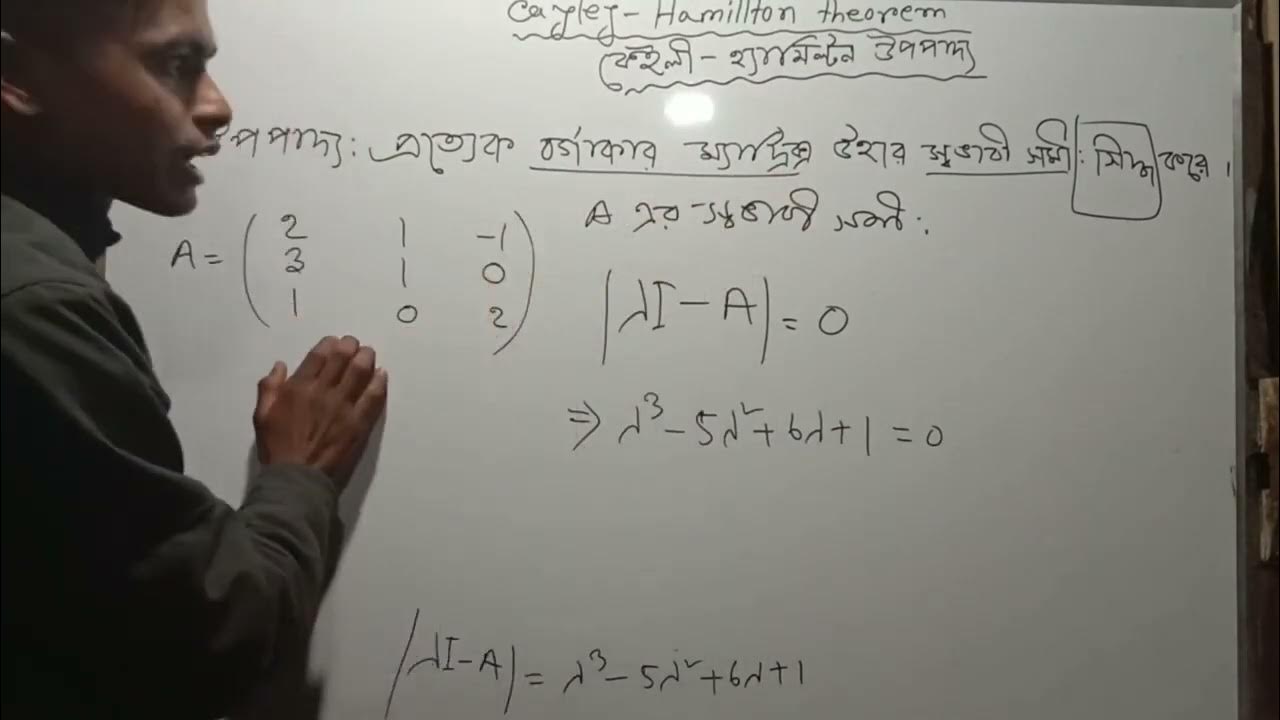 Cayley-Hamillton theorem
কেইলী-হ্যামিল্টন উপপাদ্য
উপপাদ্য: প্রত্যেক বর্গাকার ম্যাট্রিক্স উহার সমী: সিদ্ধ করে।
A এর সমী:
A = ( 2 1 -1
3 1 0
1 0 2 )
|λI - A| = 0
⇒ λ³ - 5λ² + 6λ + 1 = 0
|λI - A| = λ³ - 5λ² + 6λ + 1